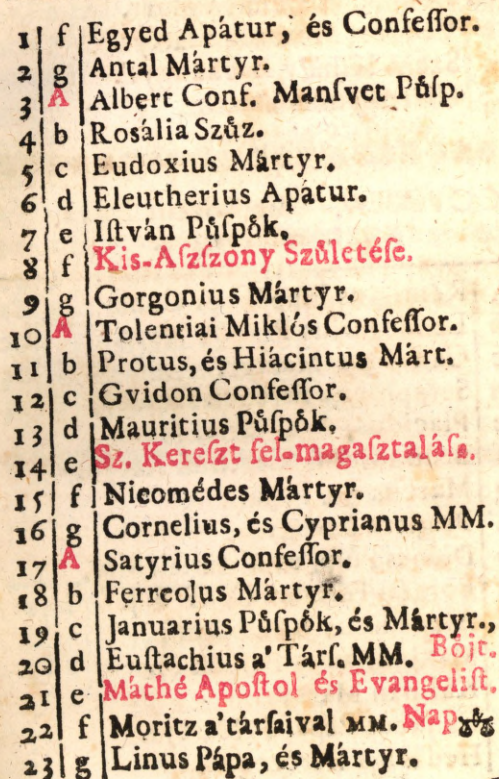 1 f Egyed Apátur, és Confeſſor.
2 g Antal Mártyr.
3 A Albert Conf. Manſvet Půſp.
4 b Rosália Szůz.
5 c Eudoxius Mártyr.
6 d Eleutherius Apátur.
7 e Iſtván Půſpôk.
8 f Kis-Aſzſzony Szůletéſe.
9 g Gorgonius Mártyr.
10 A Tolentiai Miklós Confeſſor.
11 b Protus, és Hiácintus Márt.
12 c Gvidon Confeſſor.
13 d Mauritius Půſpôk.
14 e Sz. Kereſzt fel-magaſztaláſa.
15 f Nicomédes Mártyr.
16 g Cornelius, és Cyprianus MM.
17 A Satyrius Confeſſor.
18 b Ferreolus Mártyr.
19 c Januarius Půſpôk, és Mártyr.,
20 d Euſtachius a' Tárſ. MM. Bôjt.
21 e Máthé Apoſtol és Evangeliſt.
22 f Moritz a' társaival MM. Nap.
23 g Linus Pápa, és Mártyr.